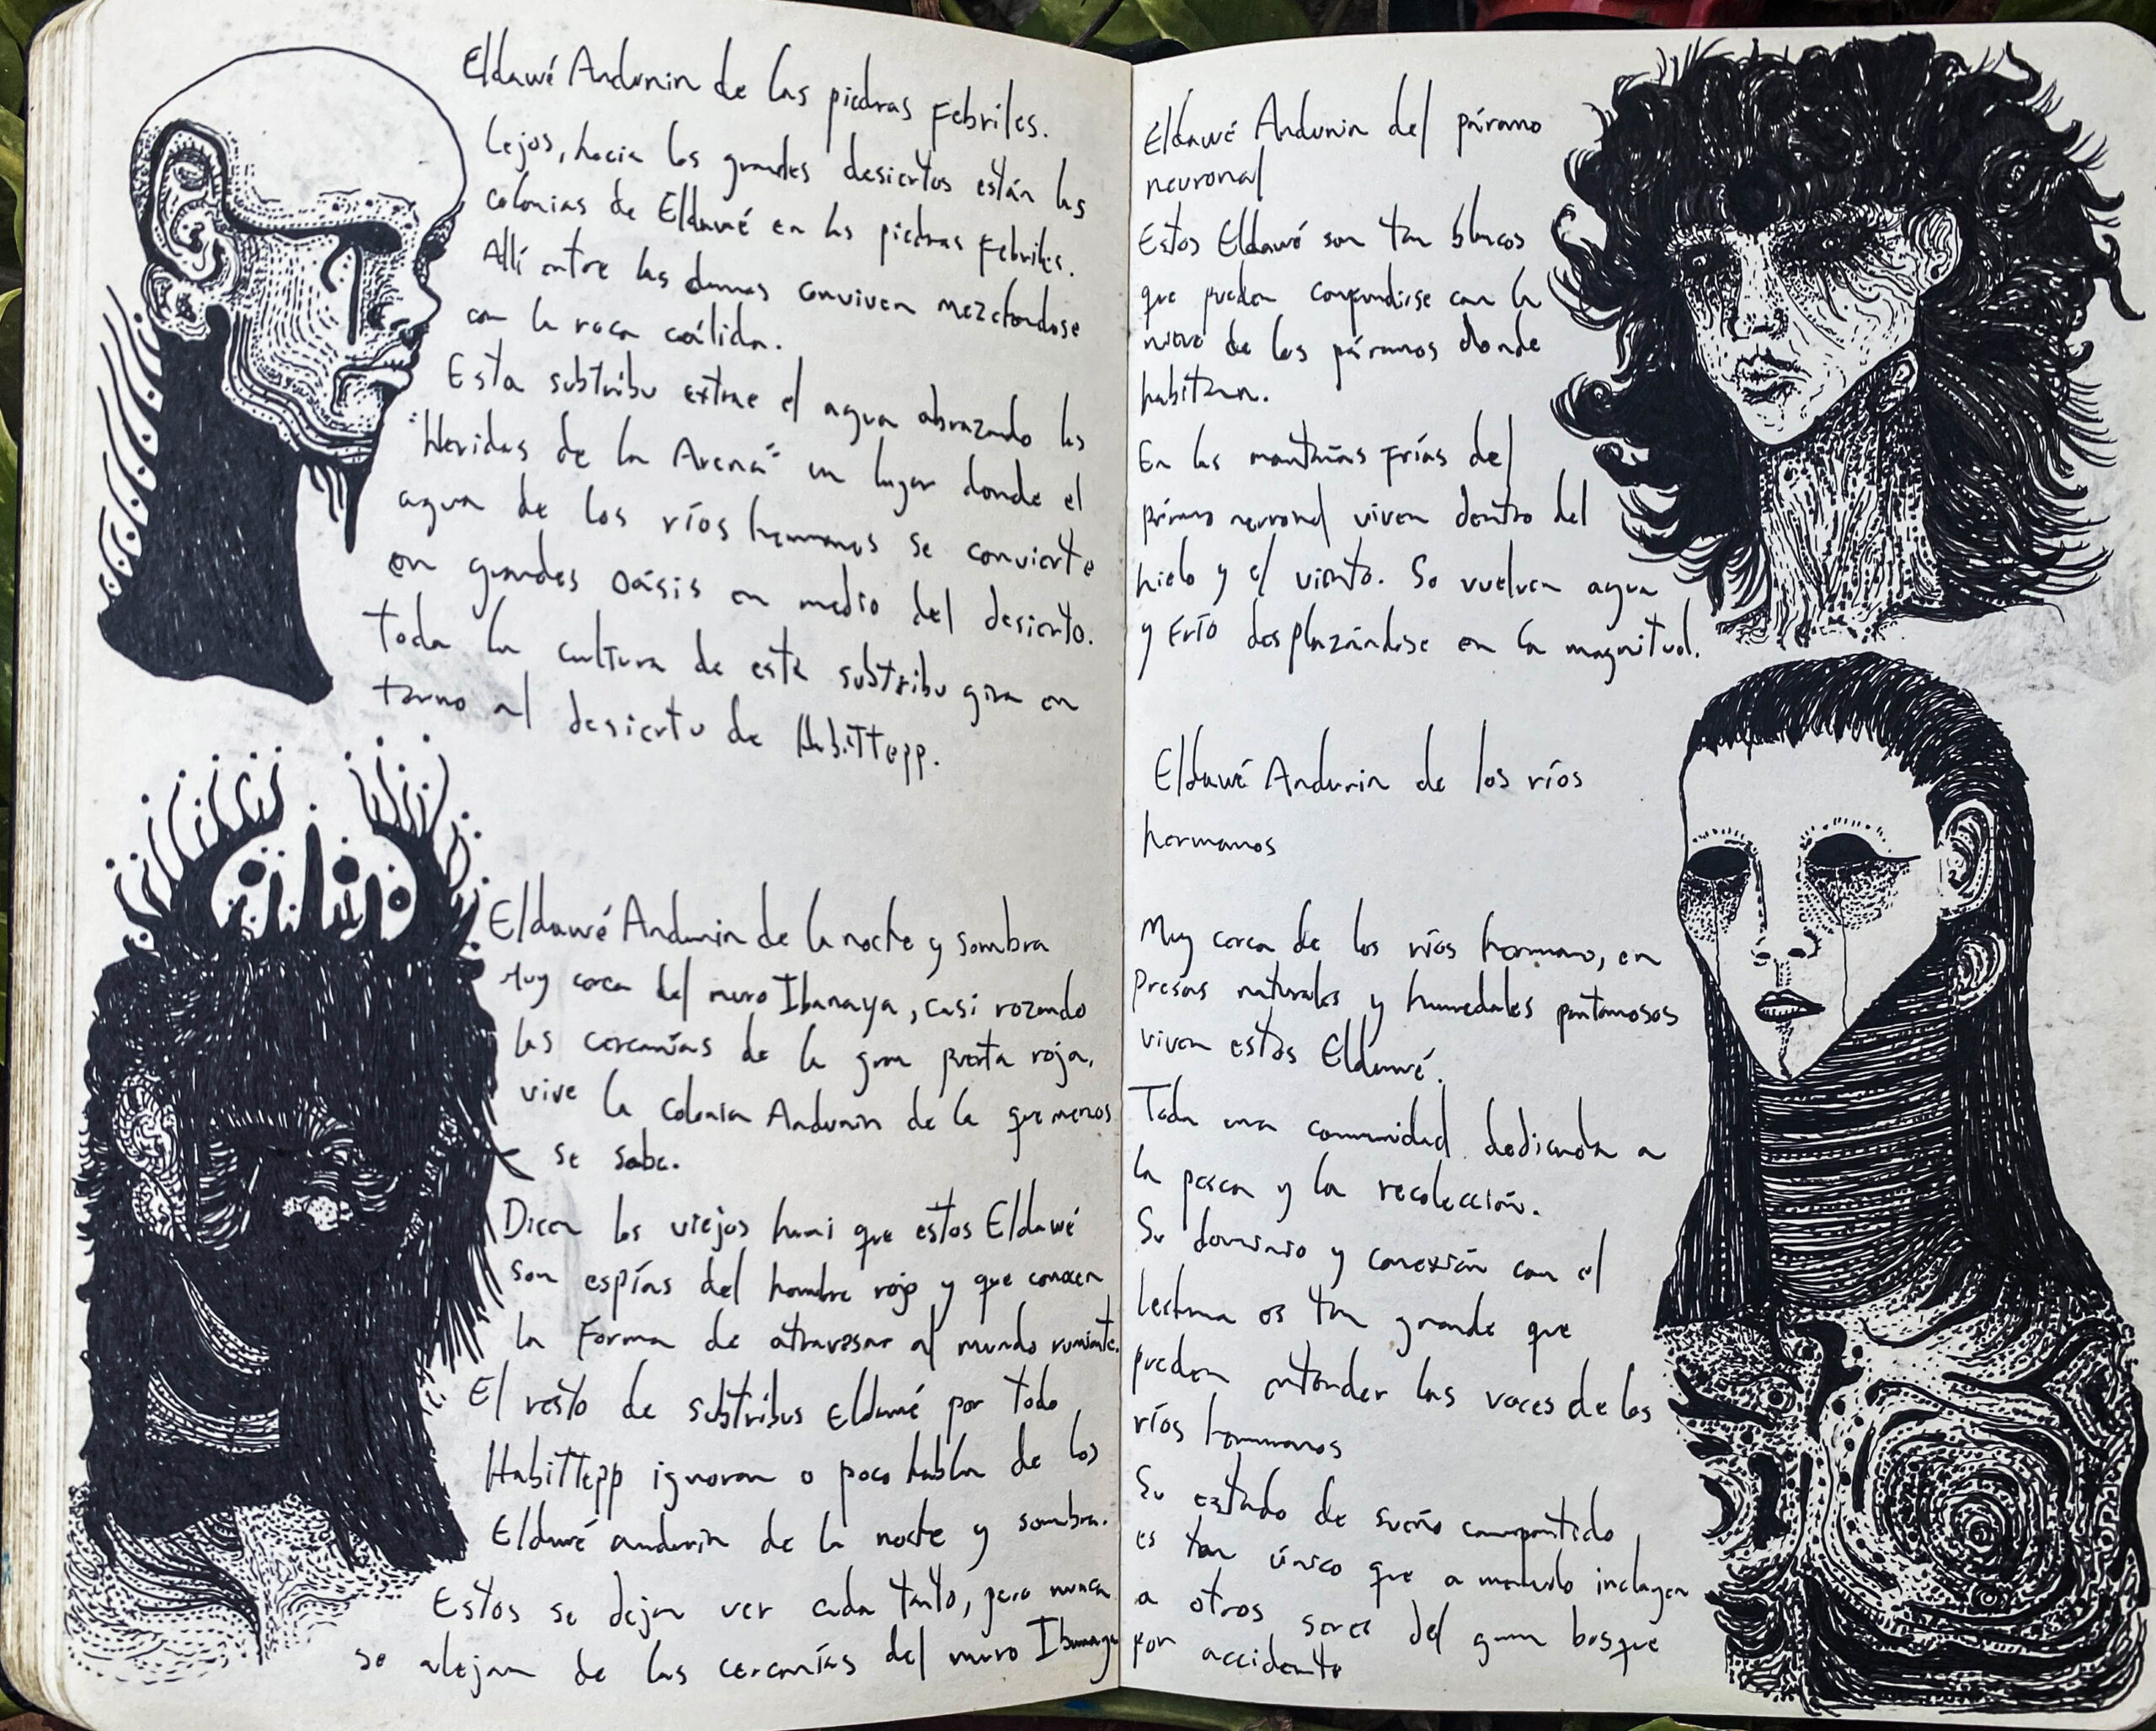 Eldawé Andunin de las piedras febriles.
Lejos, hacia los grandes desiertos están las
colonias de Eldawé en las piedras febriles.
Allí entre las dunas conviven mezclandose
con la roca cálida.
Esta subtribu extrae el agua abrazando las
"Heridas de la Arena" un lugar donde el
agua de los ríos hermanos se convierte
en grandes oásis en medio del desierto.
Toda la cultura de esta subtribu gira en
torno al desierto de Habittepp.
Eldawé Andunin de la noche y sombra
Muy cerca del muro Ibanaya, casi rozando
las cercanías de la gran puerta roja,
vive la colonia Andunin de la que menos
se sabe.
Dicen los viejos humi que estos Eldawé
son espías del hombre rojo y que conocen
la forma de atravesar al mundo rumiante.
El resto de subtribus Eldawé por todo
Habittepp ignoran o poco hablan de los
Eldawé andunin de la noche y sombra.
Estos se dejan ver cada tanto, pero nunca
se alejan de las cercanías del muro Ibanaya
Eldawé Andunin del páramo
neuronal
Estos Eldawé son tan blancos
que pueden confundirse con la
nieve de los páramos donde
habitan.
En las montañas frías del
páramo neuronal viven dentro del
hielo y el viento. Se vuelven agua
y frío desplazándose en la magnitud.
Eldawé Andunin de los ríos
hermanos
Muy cerca de los ríos hermano, en
presas naturales y humedales pantanosos
viven estos Eldawé.
Toda una comunidad dedicada a
la pesca y la recolección.
Su dominio y conexión con el
es tan grande que
pueden entender las voces de los
ríos hermanos
Su estado de sueño compartido
es tan único que a menudo incluyen
a otros seres del gran bosque
por accidente